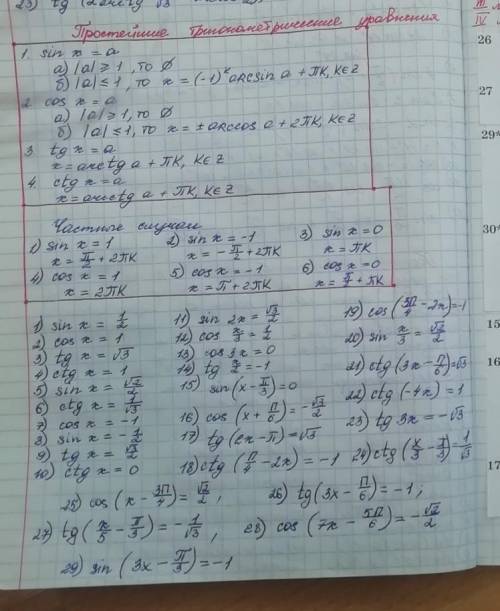 23) tg (2arctg √3
Простейшие тригонометрические уравнения
1. sin x = a
а) |a| ≥ 1, то ∅
б) |a| ≤ 1, то x = (-1)ᵏ arcsin a + πk, k∈Z
2. cos x = a
а) |a| ≥ 1, то ∅
б) |a| ≤ 1, то x = ± arccos a + 2πk, k∈Z
3. tg x = a
x = arctg a + πk, k∈Z
4. ctg x = a
x = arcctg a + πk, k∈Z
Частные случаи
1) sin x = 1 2) sin x = -1 3) sin x = 0
x = π/2 + 2πk x = -π/2 + 2πk x = πk
4) cos x = 1 5) cos x = -1 6) cos x = 0
x = 2πk x = π + 2πk x = π/2 + πk
1) sin x = 1/2
2) cos x = 1
3) tg x = √3
4) ctg x = 1
5) sin x = √2/2
6) ctg x = 1/√3
7) cos x = -1
8) sin x = -1/2
9) tg x = √3/2
10) ctg x = 0
11) sin 2x = √3/2
12) cos x/3 = 1/2
13) cos 3x = 0
14) tg x/2 = -1
15) sin(x - π/3) = 0
16) cos (x + π/6) = -√3/2
17) tg (2x - π) = √3
18) ctg (π/4 - 2x) = -1
19) cos (3π/4 - 2x) = -1
20) sin x/3 = √2/2
21) ctg (3x - π/2) = √3
22) ctg (-4x) = 1
23) tg 3x = -√3
24) ctg (x/3 - π/3) = 1/√3
25) cos (x - 3π/4) = √2/2, 26) tg (3x - π/6) = -1;
27) tg (x/5 - π/3) = -1/√3, 28) cos (7x - 5π/6) = -√2/2
29) sin (3x - π/3) = -1
III
IV
26
27
29*
30*
15
16
17